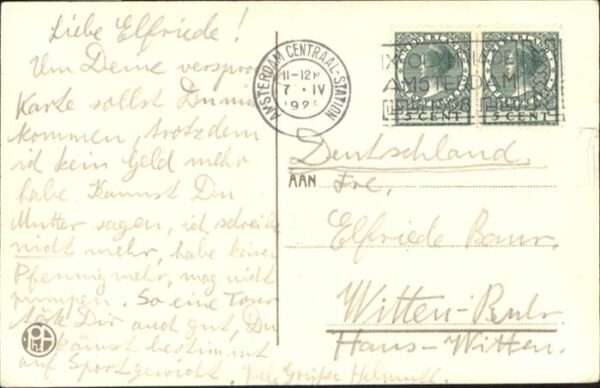 Liebe Elfriede!
Um Deine verspro
Karte sollst Du nun
kommen, trotzdem
ich kein Geld mehr
habe. Kannst Du
Mutter sagen, ich schreibe
nicht mehr, habe keinen
Pfennig mehr, mag nicht
pumpen. So eine
Dir auch gut, Du
kannst bestimmt
auf Sportgewicht. Grüße Helmuth.
AMSTERDAM CENTRAAL-STATION
11-12
7 IV
192
IXE OLYMPIADE
AMSTERDAM
1928
NEDERLAND
NEDERLAND
5 CENT
5 CENT
Deutschland.
AAN
Frl.
Elfriede Baur.
Witten-Ruhr.
Haus-Witten.